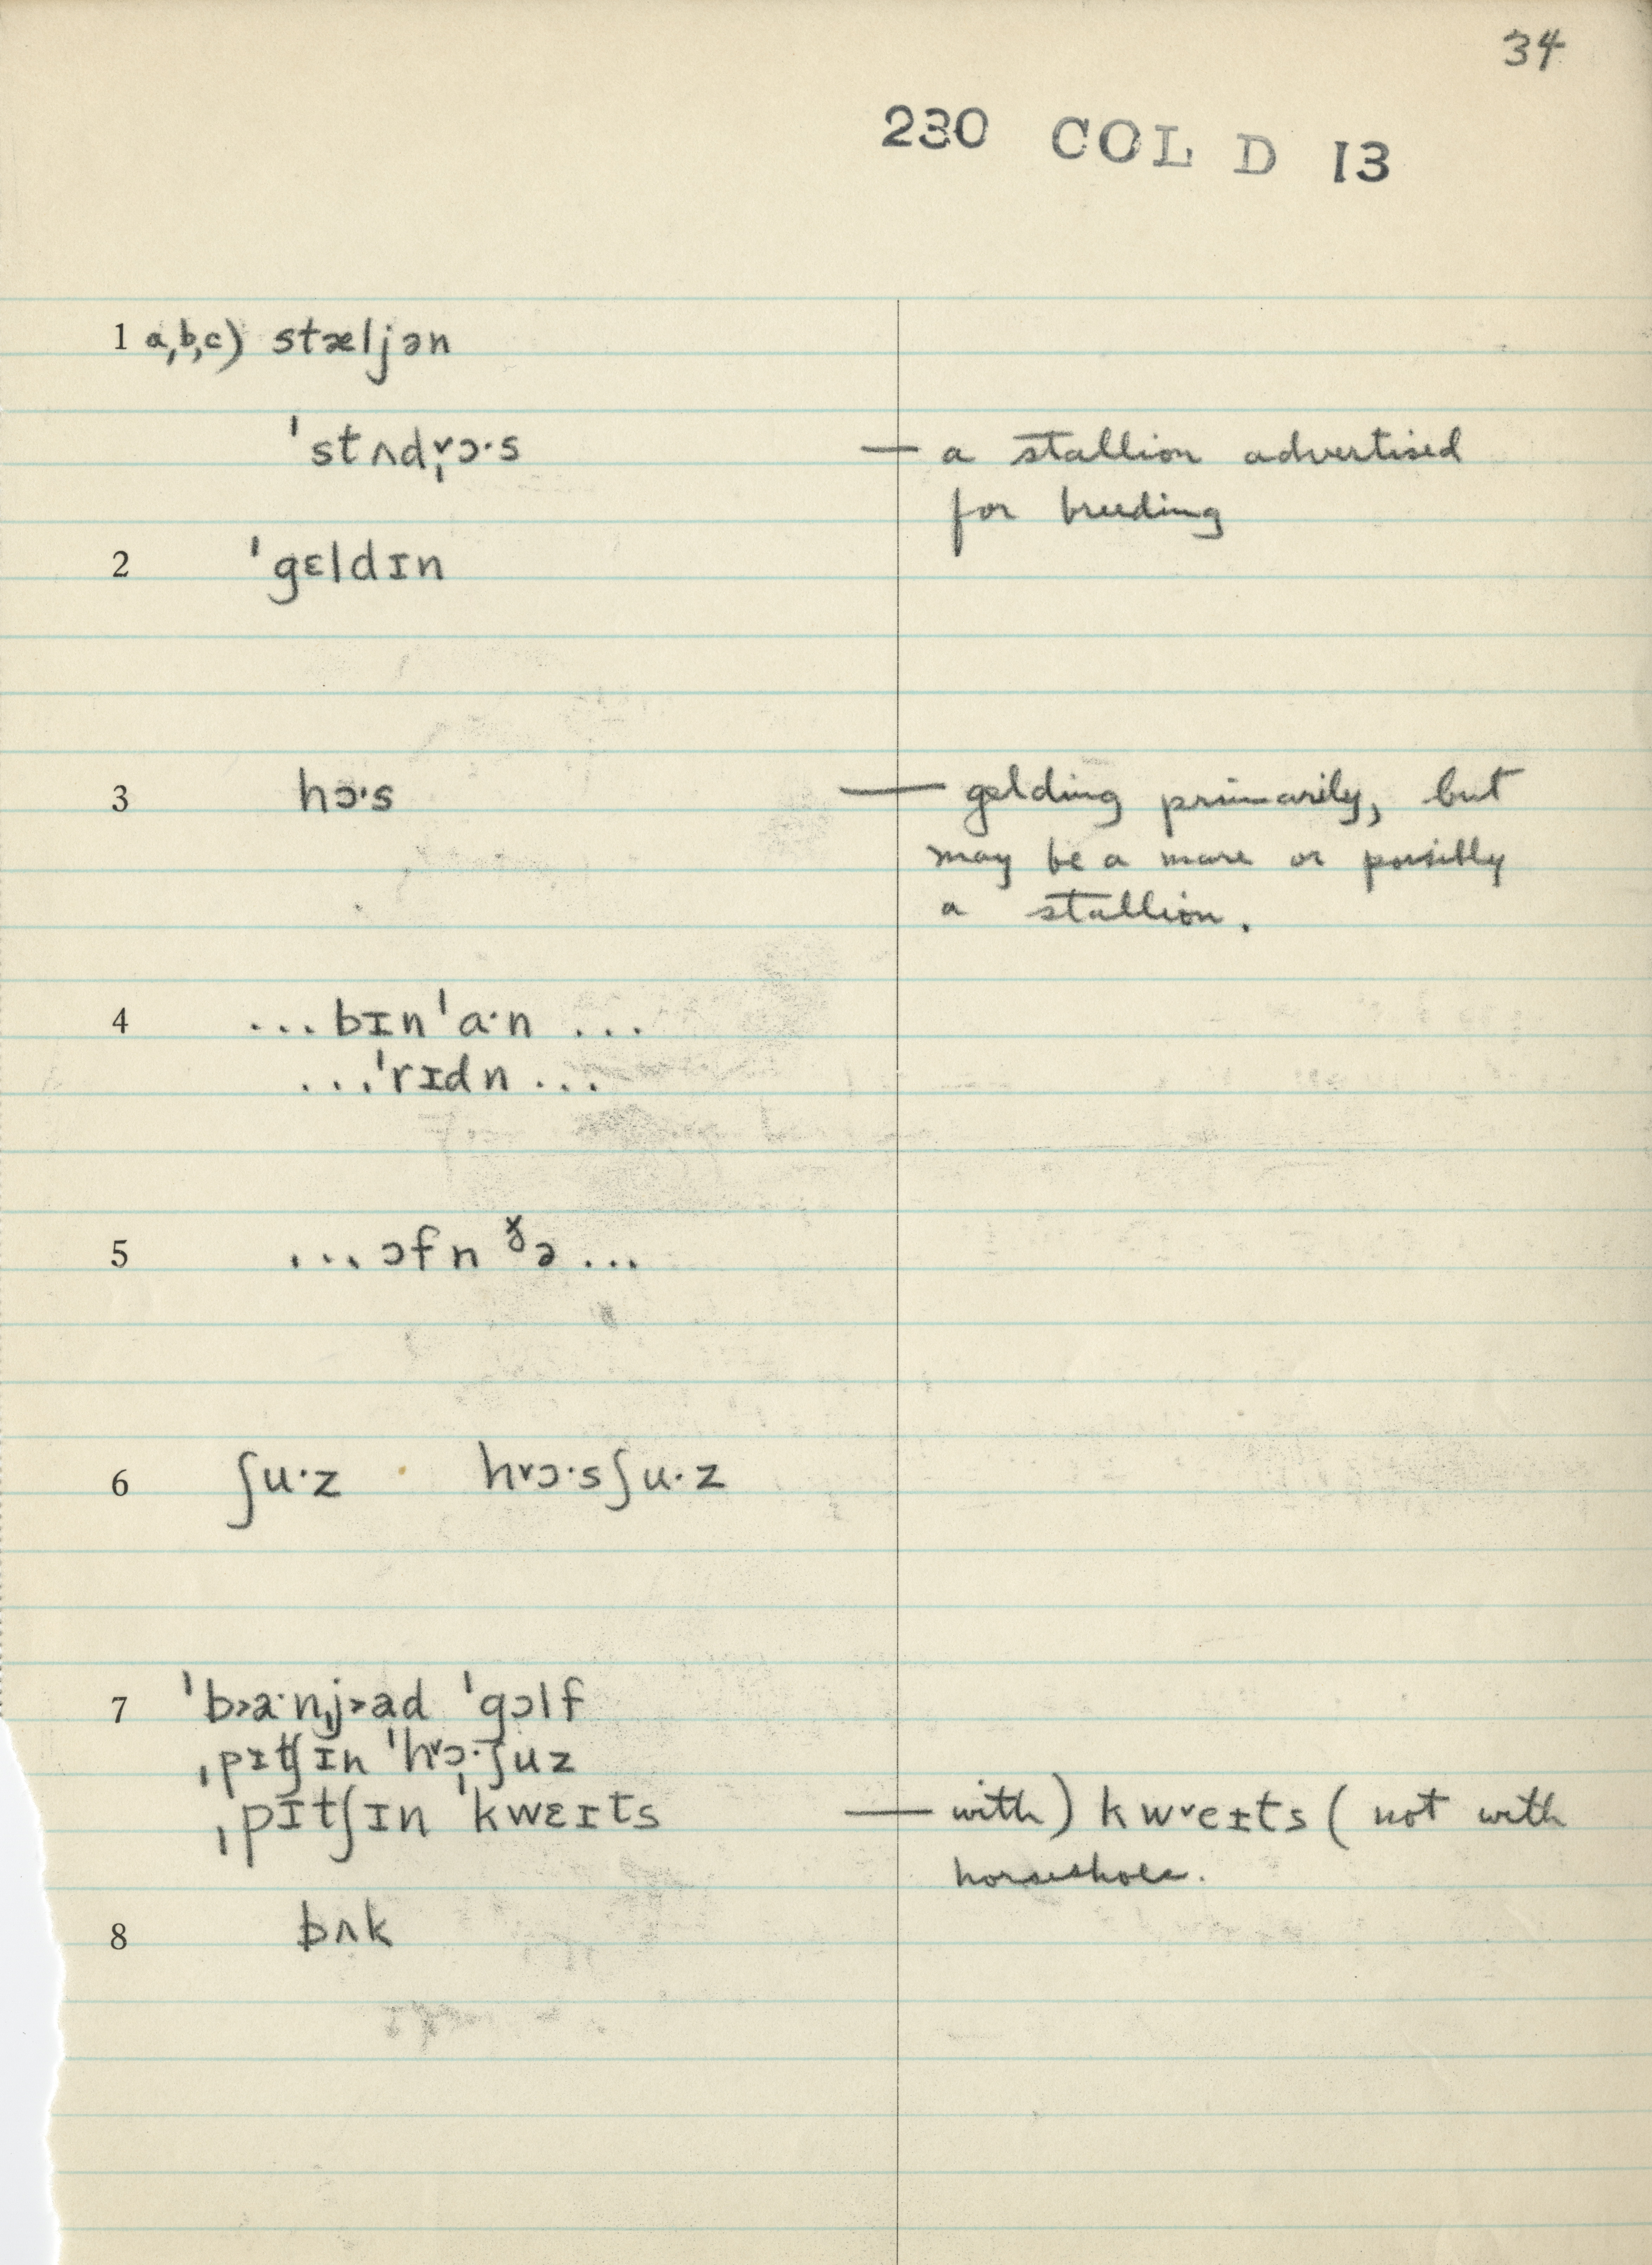 34
230 COL D 13
1 a,b,c) stæljən
ˈstʌdˌ˅ɔ·s — a stallion advertised
for breeding
2 ˈgɛldɪn
3 hɔ·s — gelding primarily, but
may be a mare or possibly
a stallion.
4 ...bɪnˈa·n ...
...ˈrɪdn ...
5 ...ɔfn ɚ̆ə ...
6 ʃu·z h˅ɔ·sʃu·z
7 ˈb˃a·nˌj˃ad ˈgɔlf
ˌpɪtʃɪn ˈh˅ɔ·ˌʃuz
ˌpɪtʃɪn ˈkwɛɪts — with) kw˅eɪts (not with
horseshoes.
8 bʌk